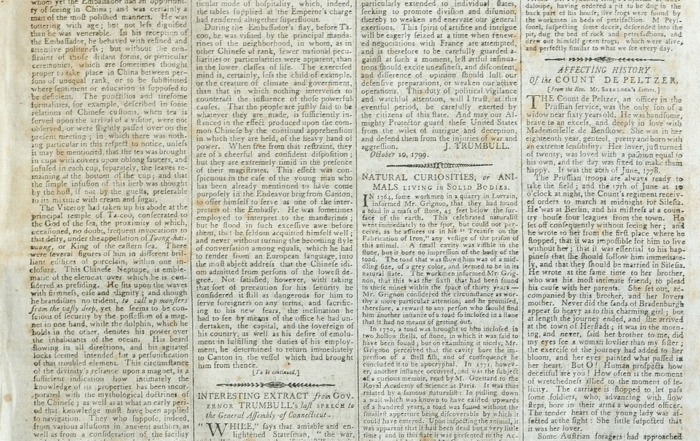 of the most personable men. He
was tottering with age; but not less dignified
than he was venerable. In his reception of
the Embassador, he behaved with refined and
attentive politeness; but without the con-
straint of those distant forms, or particular
ceremonies, which are sometimes thought
proper to take place in China between per-
sons of unequal rank, or to be substituted
where sentiment or education is supposed to
be deficient. The prostitution and irksome
formalities, for example, described in some
relations of Chinese customs, when tea is
served upon the arrival of a visitor, were not
observed, or were slightly passed over on the
present meeting; in which there was noth-
ing particular in this respect to notice, unless
it may be mentioned, that the tea was brought
in cups with covers upon oblong saucers, and
infused in each cup, separately, the leaves re-
maining at the bottom of the cup; and that
the simple infusion of this herb was thought
by the host, if not by the guests, preferable
to its mixture with cream and sugar.
The Viceroy had taken up his abode at the
principal temple of Ta-coo, consecrated to
the God of the sea, the proximity of which,
occasioned, no doubt, frequent invocations to
that deity, under the appellation of
or King of the eastern sea. There
were several figures of him in different bril-
liant edifices of porcelain, within one in-
closure. This Chinese Neptune, is emble-
matic of the element over which he is con-
sidered as presiding. He sits upon the waves
with firmness, ease and dignity; and though
he brandishes no trident, to call up monsters
from the vasty deep, yet he seems to be con-
scious of security by the possession of a mag-
net in one hand, while the dolphin, which he
holds in the other, denotes his power over
the inhabitants of the ocean. His beard
flowing in all directions, and his agitated
locks seemed intended, for a personification
of that troubled element. This circumstance
of the divinity's reliance upon a magnet, is a
sufficient indication how intimately the
knowledge of its properties has been incor-
porated with the mythological doctrines of
the Chinese, as well as at what an early peri-
od that knowledge must have been applied
to navigation. They who suppose, indeed,
from various allusions in ancient authors, as
well as from a consideration of the facility
cular mode of hospitality, which, indeed,
the tables supplied at the Emperor's charge
had rendered altogether superfluous.
During the Embassador's stay, before Ta-
coo, he was visited by the principal manda-
rines of the neighborhood, in whom, as in
other Chinese of rank, fewer national pecu-
liarities or particularities were apparent, than
in the lower classes of life. The exercised
mind is, certainly, less the child of example,
or the creature of climate and government,
than that in which nothing intervenes to
counteract the influence of those powerful
causes. That the people are justly said to be
whatever they are made, is sufficiently in-
stanced in the effect produced upon the com-
mon Chinese by the continual apprehension
in which they are held, of the heavy hand of
power. When free from this restraint, they
are of a cheerful and confident disposition;
but they are extremely timid in the presence
of their magistrates. This effect was con-
spicuous in the case of the young man who
has been already mentioned to have come
purposely in the Endeavour brig from Canton,
to offer himself to serve as one of the inter-
preters of the Embassy. He was sometimes
employed to interpret to the mandarines;
but he stood in such excessive awe before
them, that he seldom acquitted himself well;
and never without turning the becoming style
of conversation among equals, which he had
to render from an European language, into
the most abject address that the Chinese idi-
om admitted from persons of the lowest de-
gree. Not satisfied, however, with taking
that sort of precaution for his security he
considered it still as dangerous for him to
serve foreigners on any terms, and sacrific-
ing to his new fears, the inclination he
had to see by means of the office he had un-
dertaken, the capital, and the sovereign of
his country, as well as his desire of emolu-
ment in fulfilling the duties of his employ-
ment, he determined to return immediately
to Canton in the vessel which had brought
him from thence.
[To be continued.]
INTERESTING EXTRACT from Gov-
ERNOR TRUMBULL's last SPEECH to
the General Assembly of Connecticut.
"WHILE," says that amiable and en-
lightened Statesman, "the war,
particularly extended to individual States,
seeking to promote division and disunion,
thereby to weaken and enervate our general
exertions. This spirit of artifice and intrigue
will be eagerly seized at a time when renew-
ed negotiations with France are attempted,
and is therefore to be carefully guarded a-
gainst at such a moment, lest artful insinua-
tions should excite uneasiness, and discontent,
and difference of opinion should lull our
defensive preparations, or weaken our active
operations. This duty of political vigilance
and watchful attention, will I trust, at this
eventful period, be carefully exerted by
the citizens of this state. And may our Al-
mighty Protector guard these United States
from the wiles of intrigue and deception,
and defend them from the injuries of war and
aggression. J. TRUMBULL.
October 10, 1799.
NATURAL CURIOSITIES, or ANI-
MALS LIVING in SOLID BODIES.
IN 1764, some workmen in a quarry in Lorrain,
informed Mr. Grignon, that they had found
a toad in a mass of stone, 45 feet below the sur-
face of the earth. This celebrated naturalist
went immediately to the spot, but could not per-
ceive, as he assures us in his "Treatise on the
Fabrication of Iron," any vestige of the prison of
this animal. A small cavity was visible in the
stone, but it bore no impression of the body of the
toad. The toad that was shown him was of a mid-
dling size, of a grey color, and seemed to be in its
natural state. The workmen informed Mr. Grig-
non, that this was the sixth that had been found
in these mines within the space of thirty years.
Mr. Grignon considered the circumstance as wor-
thy a more particular attention, and he promised,
therefore, a reward to any person who should find
him another instance of a toad so inclosed in a stone
that it had no means of getting out.
In 1770, a toad was brought to him inclosed in
two hollow shells, of stone, in which it was said to
have been found; but on examining it nicely, Mr.
Grignon perceived that the cavity bore the im-
pression of a shell fish, and of consequence he
concluded it to be apocryphal. In 1771, howev-
er, another instance occurred, and was the subject
of a curious memoir, read by M. Guettard to the
Royal Academy of Science at Paris. It was thus
related by that famous naturalist: In pulling down
a wall which was known to have existed upwards
of a hundred years, a toad was found without the
smallest aperture being discoverable by which it
could have entered. Upon inspecting the animal, it
was apparent that it had been dead but a very little
time; and in this state it was presented to the Acad-
AFFECTING HISTORY
Of the COUNT DE PELTZER.
THE Count de Peltzer, an officer in the
Prussian service, was the only son of a
widow near sixty years old. He was handsome,
brave to an excess, and deeply in love with
Mademoiselle de Benskow. She was in her
eighteenth year, gentle, pretty and born with
an extreme sensibility. Her lover, just turned
of twenty, was loved with a passion equal to
his own, and the day was fixed to make them
happy. It was the 20th of June, 1778.
The Prussian troops are always ready to
take the field; and the 17th of June at 10
o'clock at night, the Count's regiment receiv-
ed orders to march at midnight for Silesia.
He was at Berlin, and his mistress at a coun-
try house four leagues from the town. He
set off consequently without seeing her; and
he wrote to her from the first place where he
stopped, that it was impossible for him to live
without her; that it was essential to his hap-
piness that she should follow him immediate-
ly, and that they should be married in Silesia.
He wrote at the same time to her brother,
who was his most intimate friend, to plead
his cause with her parents. She set out, ac-
companied by this brother, and her lover's
mother. Never did the sands of Brandenburg
appear so heavy as to this charming girl; but
at length the journey ended, and she arrived
at the town of Herstadt; it was in the morn-
ing, and never, said her brother to me, did
my eyes see a woman lovelier than my sister;
the exercise of the journey had added to her
bloom, and her eyes painted what passed in
her heart. But O! Human prospects how
deceitful are you! How often is the moment
of wretchedness allied to the moment of fe-
licity. The carriage is stopped, to let pass
some soldiers, who, advancing with slow
steps, bore in their arms a wounded officer.
The tender heart of the young lady was af-
fected at the sight: She little suspected that
it was her lover.
Some Austrian foragers had approached